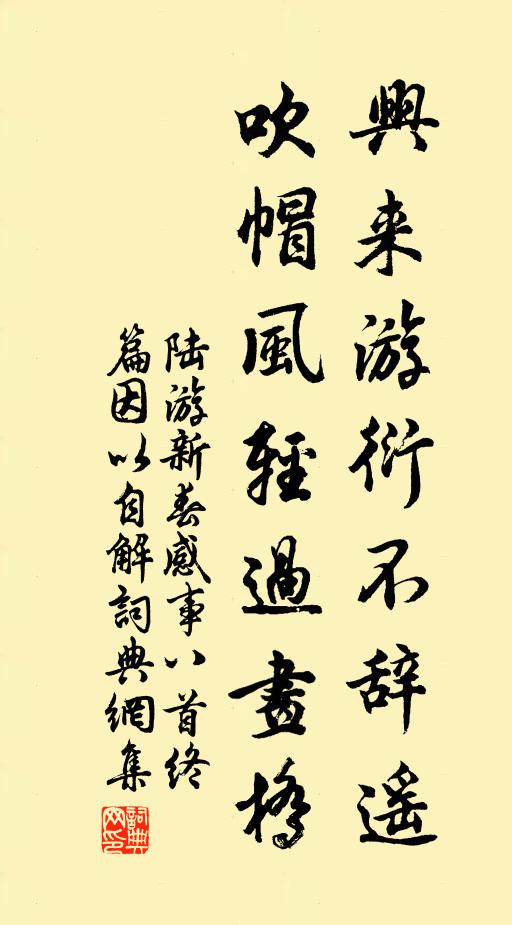 興来游衍不辞遥
吹帽風輕過畫橋
陆游新春感事八首终
篇因以自解詞典網集
詞典
网印